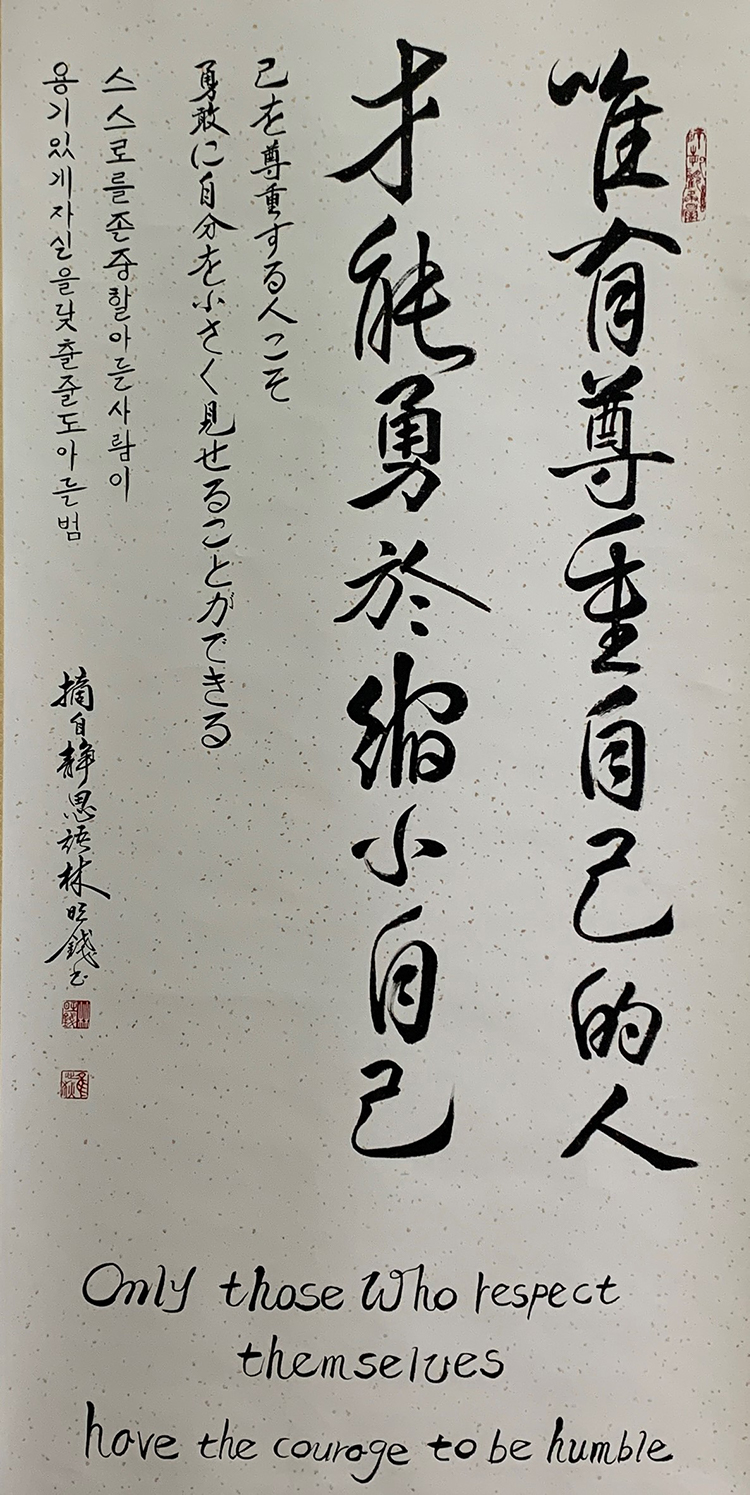 唯有尊重自己的人
才能勇於縮小自己
己を尊重する人こそ
勇敢に自分を小さく見せることができる
스스로를존중할아는사람이
용기있게자신을낮출줄도아는범
摘自靜思語林旺錢書
Only those who respect
themselves
have the courage to be humble